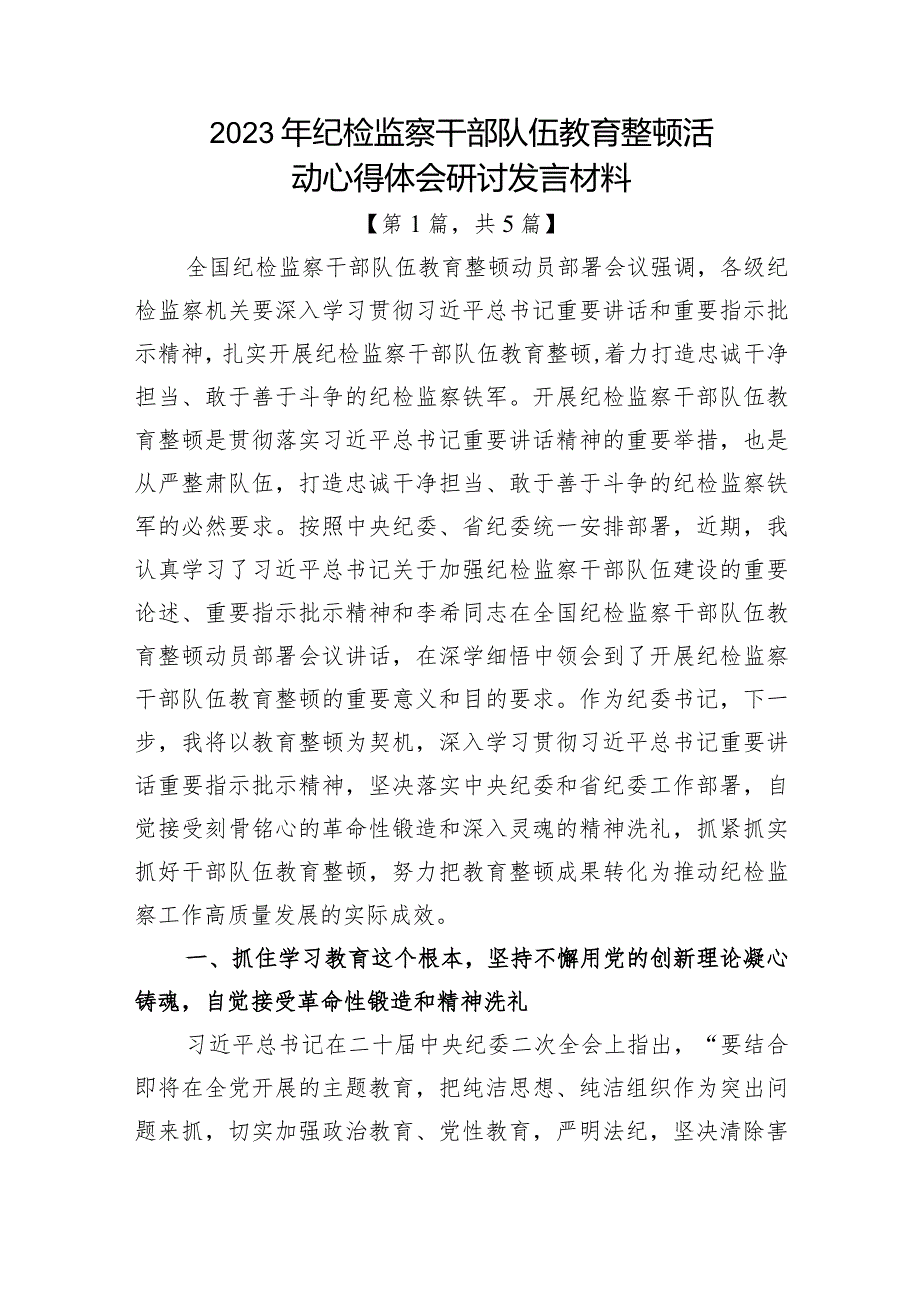 2023 年纪检监察干部队伍教育整顿活
动心得体会研讨发言材料
【第 1 篇，共 5 篇】
全国纪检监察干部队伍教育整顿动员部署会议强调，各级纪
检监察机关要深入学习贯彻习近平总书记重要讲话和重要指示批
示精神，扎实开展纪检监察干部队伍教育整顿,着力打造忠诚干净
担当、敢于善于斗争的纪检监察铁军。开展纪检监察干部队伍教
育整顿是贯彻落实习近平总书记重要讲话精神的重要举措，也是
从严整肃队伍，打造忠诚干净担当、敢于善于斗争的纪检监察铁
军的必然要求。按照中央纪委、省纪委统一安排部署，近期，我
认真学习了习近平总书记关于加强纪检监察干部队伍建设的重要
论述、重要指示批示精神和李希同志在全国纪检监察干部队伍教
育整顿动员部署会议讲话，在深学细悟中领会到了开展纪检监察
干部队伍教育整顿的重要意义和目的要求。作为纪委书记，下一
步，我将以教育整顿为契机，深入学习贯彻习近平总书记重要讲
话重要指示批示精神，坚决落实中央纪委和省纪委工作部署，自
觉接受刻骨铭心的革命性锻造和深入灵魂的精神洗礼，抓紧抓实
抓好干部队伍教育整顿，努力把教育整顿成果转化为推动纪检监
察工作高质量发展的实际成效。
一、抓住学习教育这个根本，坚持不懈用党的创新理论凝心
铸魂，自觉接受革命性锻造和精神洗礼
习近平总书记在二十届中央纪委二次全会上指出，“要结合
即将在全党开展的主题教育，把纯洁思想、纯洁组织作为突出问
题来抓，切实加强政治教育、党性教育，严明法纪，坚决清除害